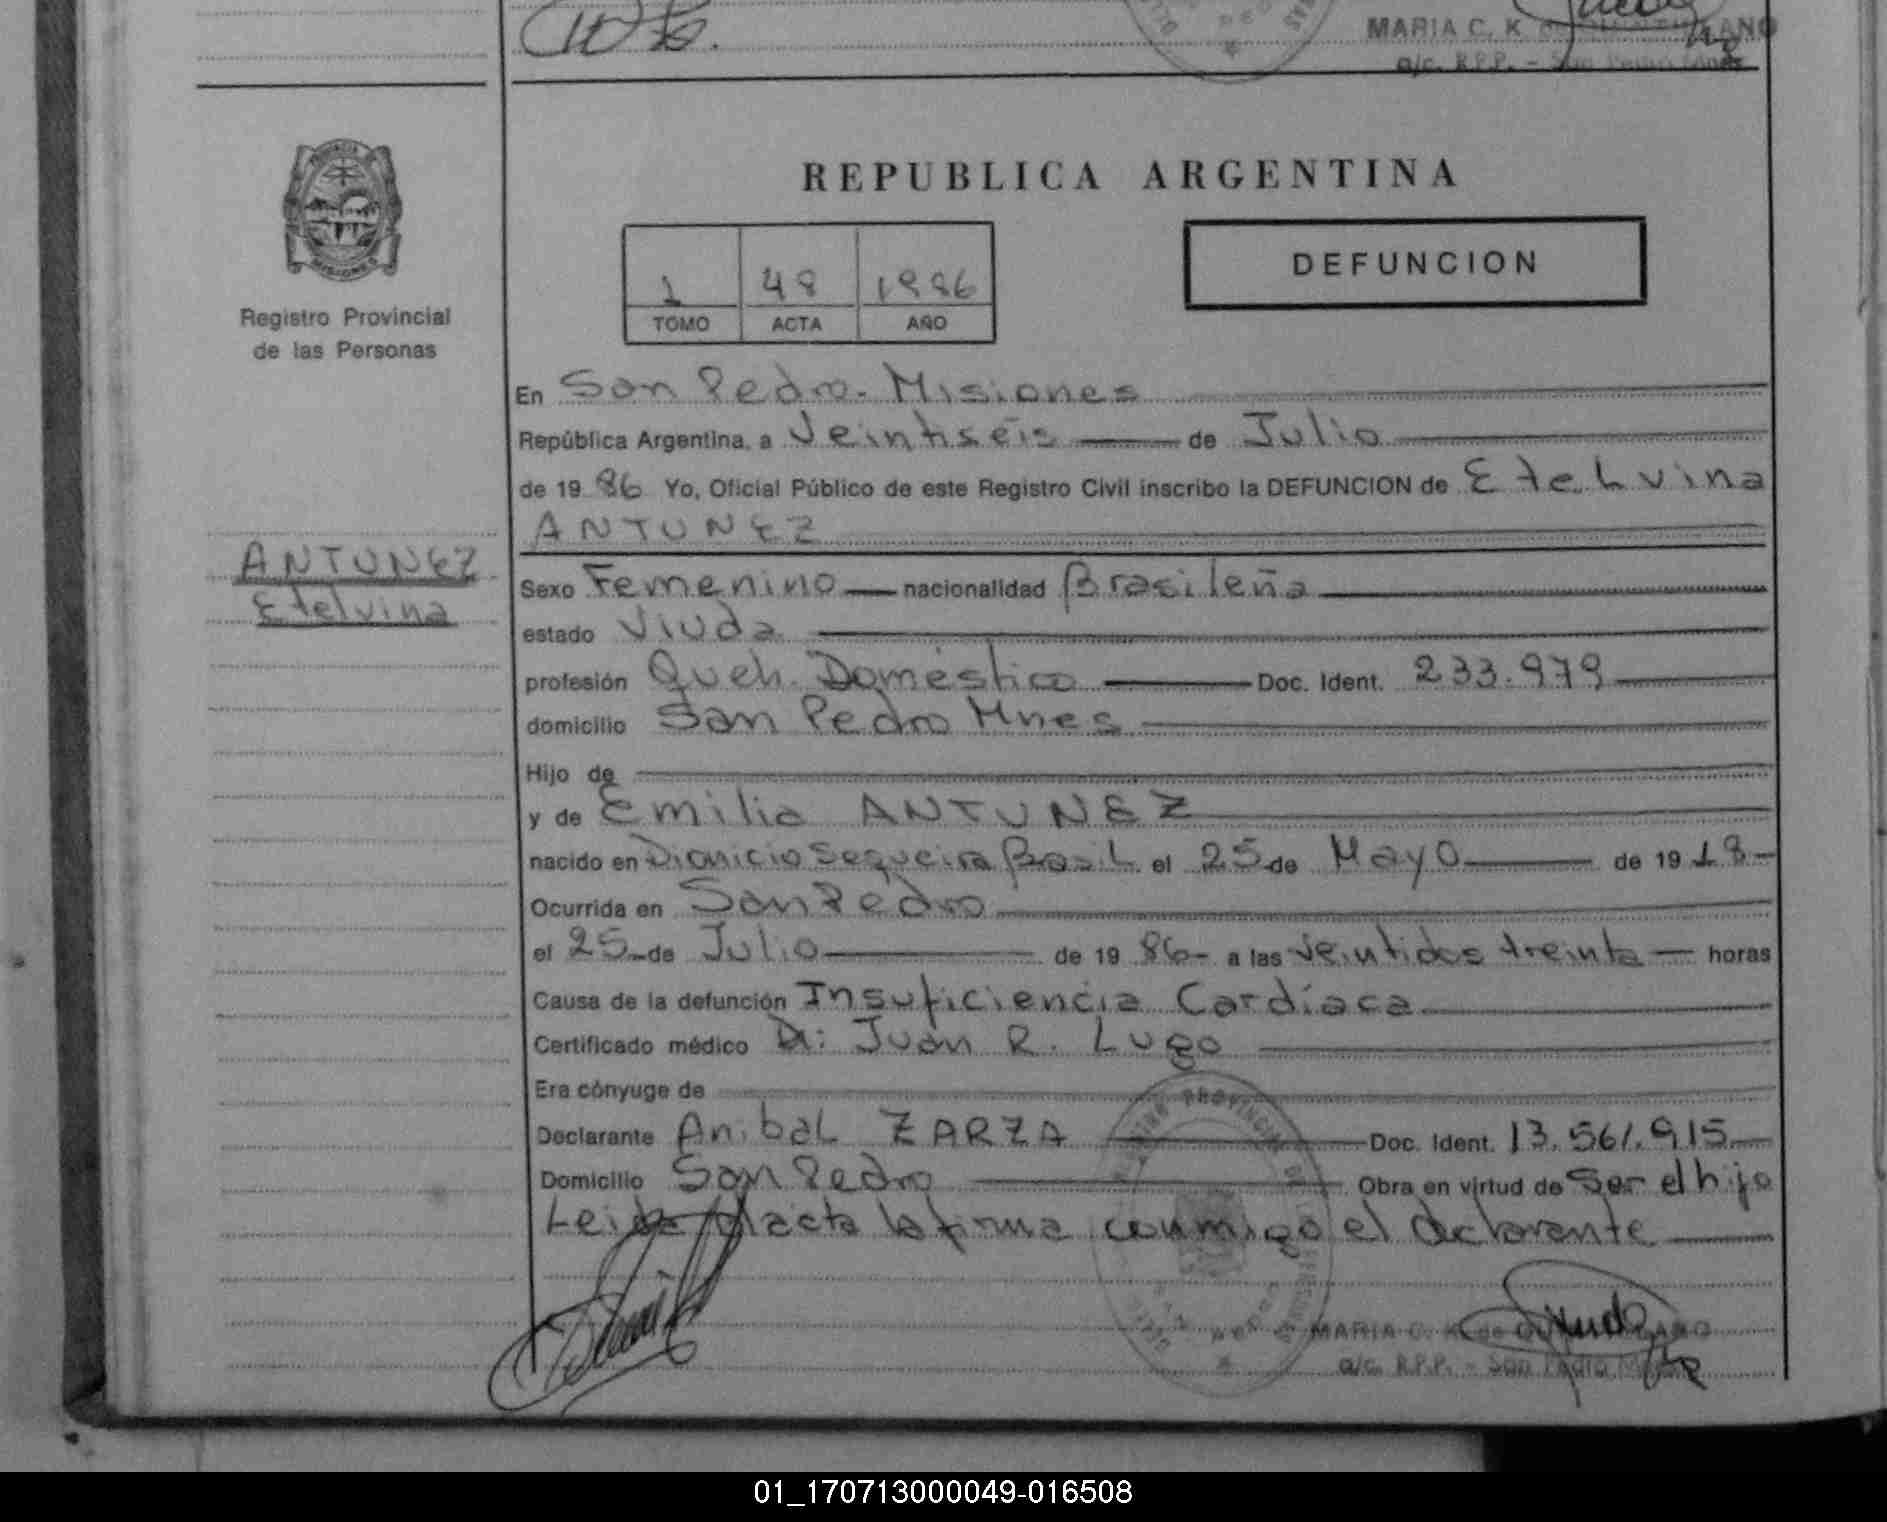 MARIA C. K. de
a/c. R.P.P. - San Pedro Mnes
PROVINCIA DE
MISIONES
Registro Provincial
de las Personas
REPUBLICA ARGENTINA
1 48 1986
TOMO ACTA AÑO
DEFUNCION
En San Pedro. Misiones
República Argentina, a Veintiséis de Julio
de 19 86 Yo, Oficial Público de este Registro Civil inscribo la DEFUNCION de Etelvina
ANTUNEZ
ANTUNEZ
Etelvina
Sexo Femenino nacionalidad Brasileña
estado Viuda
profesión Queh. Doméstico Doc. Ident. 233.979
domicilio San Pedro Mnes
Hijo de
y de Emilia ANTUNEZ
nacido en Dionicio Sequeira Brasil el 25 de Mayo de 19 18
Ocurrida en San Pedro
el 25 de Julio de 19 86 a las veintidos treinta horas
Causa de la defunción Insuficiencia Cardíaca
Certificado médico Dr: Juan R. Lugo
Era cónyuge de
Declarante Anibal ZARZA Doc. Ident. 13.561.915
Domicilio San Pedro Obra en virtud de Ser el hijo
Leida el acta la firma conmigo el declarante
MARIA C. K. de
a/c. R.P.P. - San Pedro
01_170713000049-016508